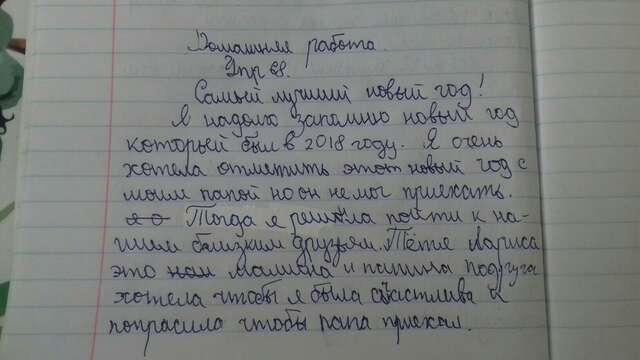 Домашняя работа.
Упр 68.
Самый лучший новый год!
Я надолго запомню новый год
который был в 2018 году. Я очень
хотела отметить этот новый год с
моим папой но он не мог приехать.
Тогда я решила пойти к на-
шим близким друзьям. Тётя Лариса
это мамина и папина подруга
хотела чтобы я была счастлива и
попрасила чтобы папа приехал.